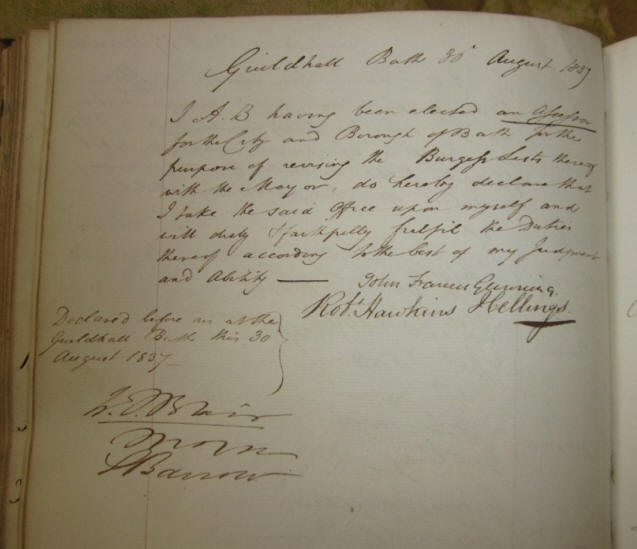 Guildhall Bath 30th August 1837
I A. B having been elected an Assessor
for the City and Borough of Bath for the
purpose of revising the Burgess Lists thereof
with the Mayor, do hereby declare that
I take the said Office upon myself and
will duly & faithfully fulfil the Duties
thereof according to the best of my Judgment
and Ability —
John Francis Gunning
Robt. Hawkins Hellings.
Declared before us at the
Guildhall Bath this 30
August 1837
Barrow